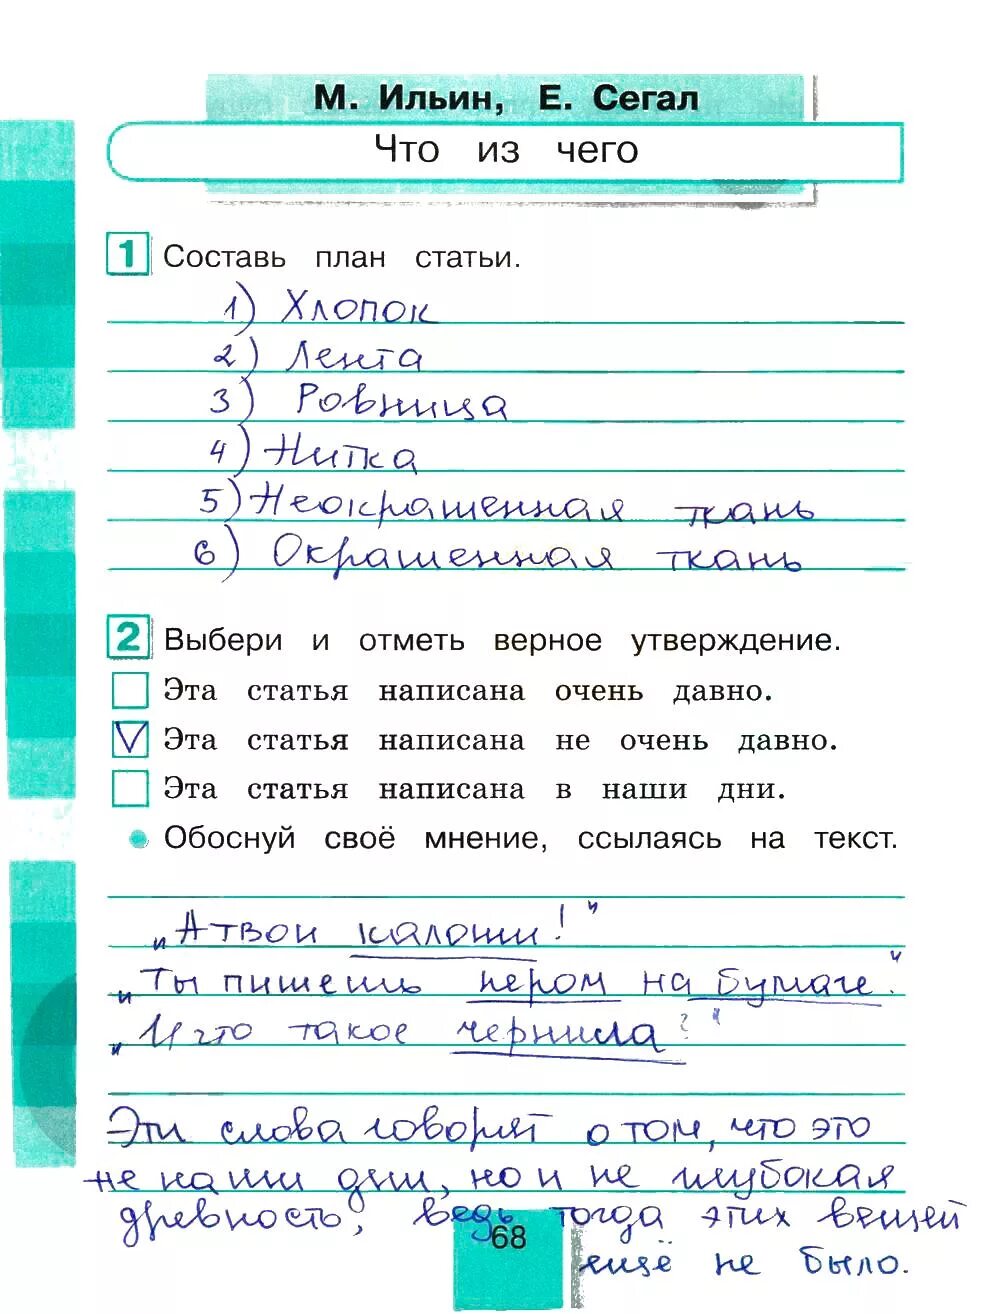 М. Ильин, Е. Сегал
Что из чего
1 Составь план статьи.
1) Хлопок
2) Лента
3) Ровница
4) Нитка
5) Неокрашенная ткань
6) Окрашенная ткань
2 Выбери и отметь верное утверждение.
Эта статья написана очень давно.
V Эта статья написана не очень давно.
Эта статья написана в наши дни.
• Обоснуй своё мнение, ссылаясь на текст.
„А твои калоши!“
„Ты пишешь пером на бумаге“.
„И что такое чернила?“
Эти слова говорят о том, что это
не наши дни, но и не глубокая
древность, ведь тогда этих вещей
68 ещё не было.